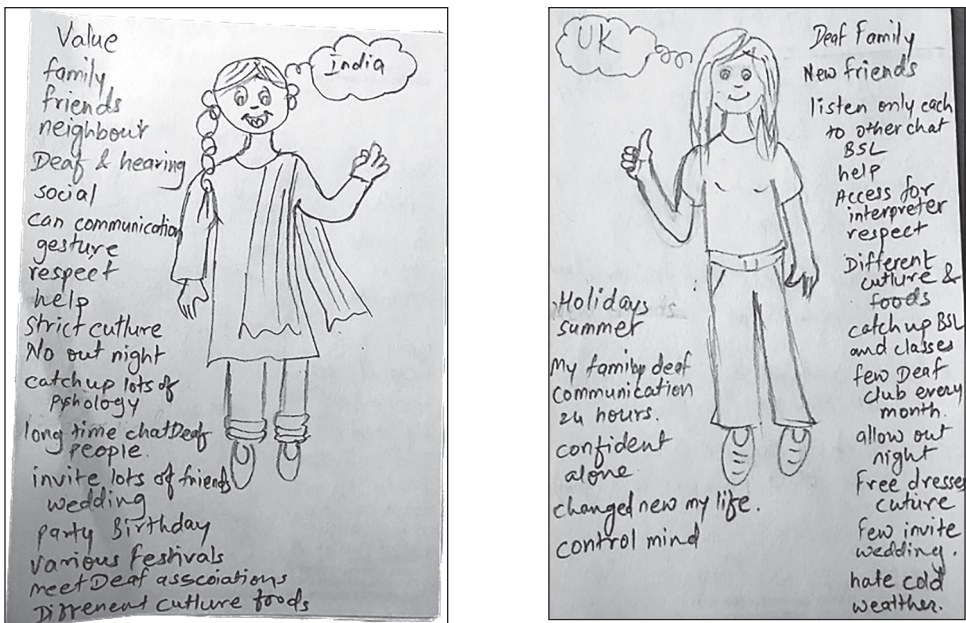 Value
family
friends
neighbour
Deaf & hearing
social
can communication
gesture
respect
help
Strict cutlure
No out night
catch up lots of
pyhology
long time chat Deaf
people.
invite lots of friends
wedding
party Birthday
various Festivals
meet Deaf asscoiations
Diffenent cutlure foods
India
UK
Holidays
summer
My family deaf
communication
24 hours.
confident
alone
changed new my life.
control mind
Deaf Family
New friends
listen only each
to other chat
BSL
help
Access for
interpreter
respect
Different
cutlure &
foods
catch up BSL
and classes
few Deaf
club every
month.
allow out
night
Free dresses
cuture
Few invite
wedding.
hate cold
weatther.